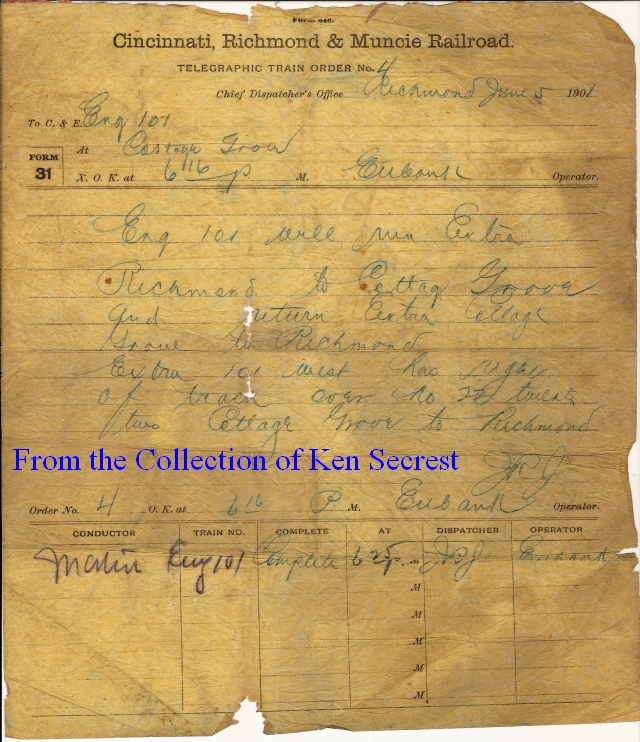 Form 240.
Cincinnati, Richmond & Muncie Railroad.
TELEGRAPHIC TRAIN ORDER No. 4
Chief Dispatcher's Office Richmond June 5 1901
To C. & E. Eng 101
At Cottage Grove
FORM 31
X. O. K. at 6 16 p M. Eubank Operator.
Eng 101 will run Extra
Richmond to Cottag Grove
and return Extra Cottage
Grove to Richmond
Extra 101 west has right
of track over No 22 twenty
two Cottage Grove to Richmond
From the Collection of Ken Secrest
JBJ
Order No. 4 O. K. at 6 16 P. M. Eubank Operator.
CONDUCTOR TRAIN NO. COMPLETE AT DISPATCHER OPERATOR
Martin Eng 101 Complete 6 25 p. M JBJ Eubank
M
M
M
M
M